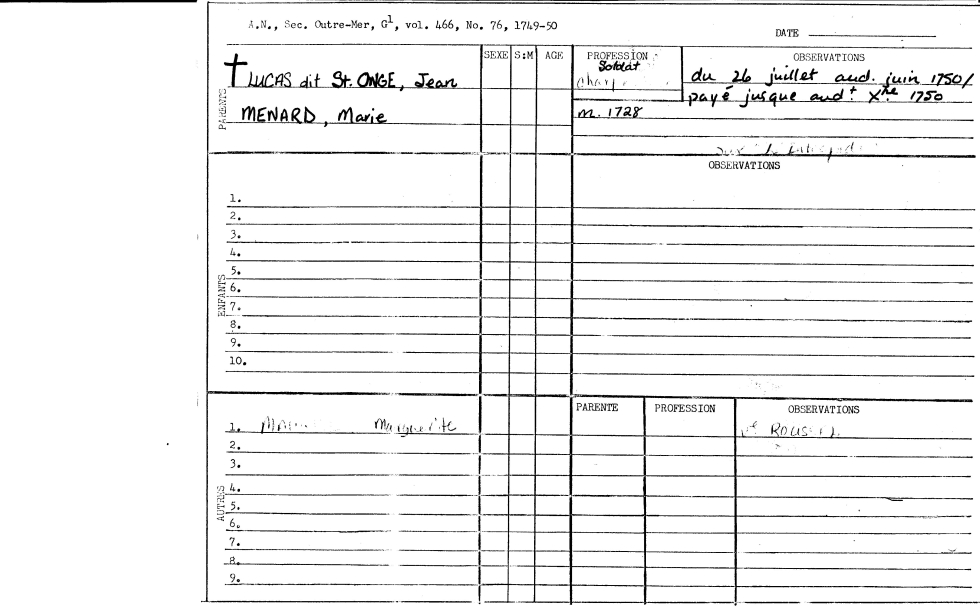 A.N., Sec. Outre-Mer, G1, vol. 466, No. 76, 1749-50
DATE
SEXE S:M AGE PROFESSION OBSERVATIONS
PARENTS
† LUCAS dit St. ONGE, Jean Soldat du 26 juillet aud. juin 1750/
payé jusque aud.t Xbre 1750
MENARD, Marie m. 1728
OBSERVATIONS
ENFANTS
1.
2.
3.
4.
5.
6.
7.
8.
9.
10.
PARENTE PROFESSION OBSERVATIONS
AUTRES
1. Marguerite
2.
3.
4.
5.
6.
7.
8.
9.